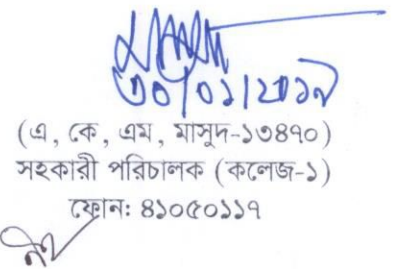 ৩০/০১/২০১৯
(এ, কে, এম, মাসুদ-১৩৪৭০)
সহকারী পরিচালক (কলেজ-১)
ফোন: ৪১০৫০১১৭